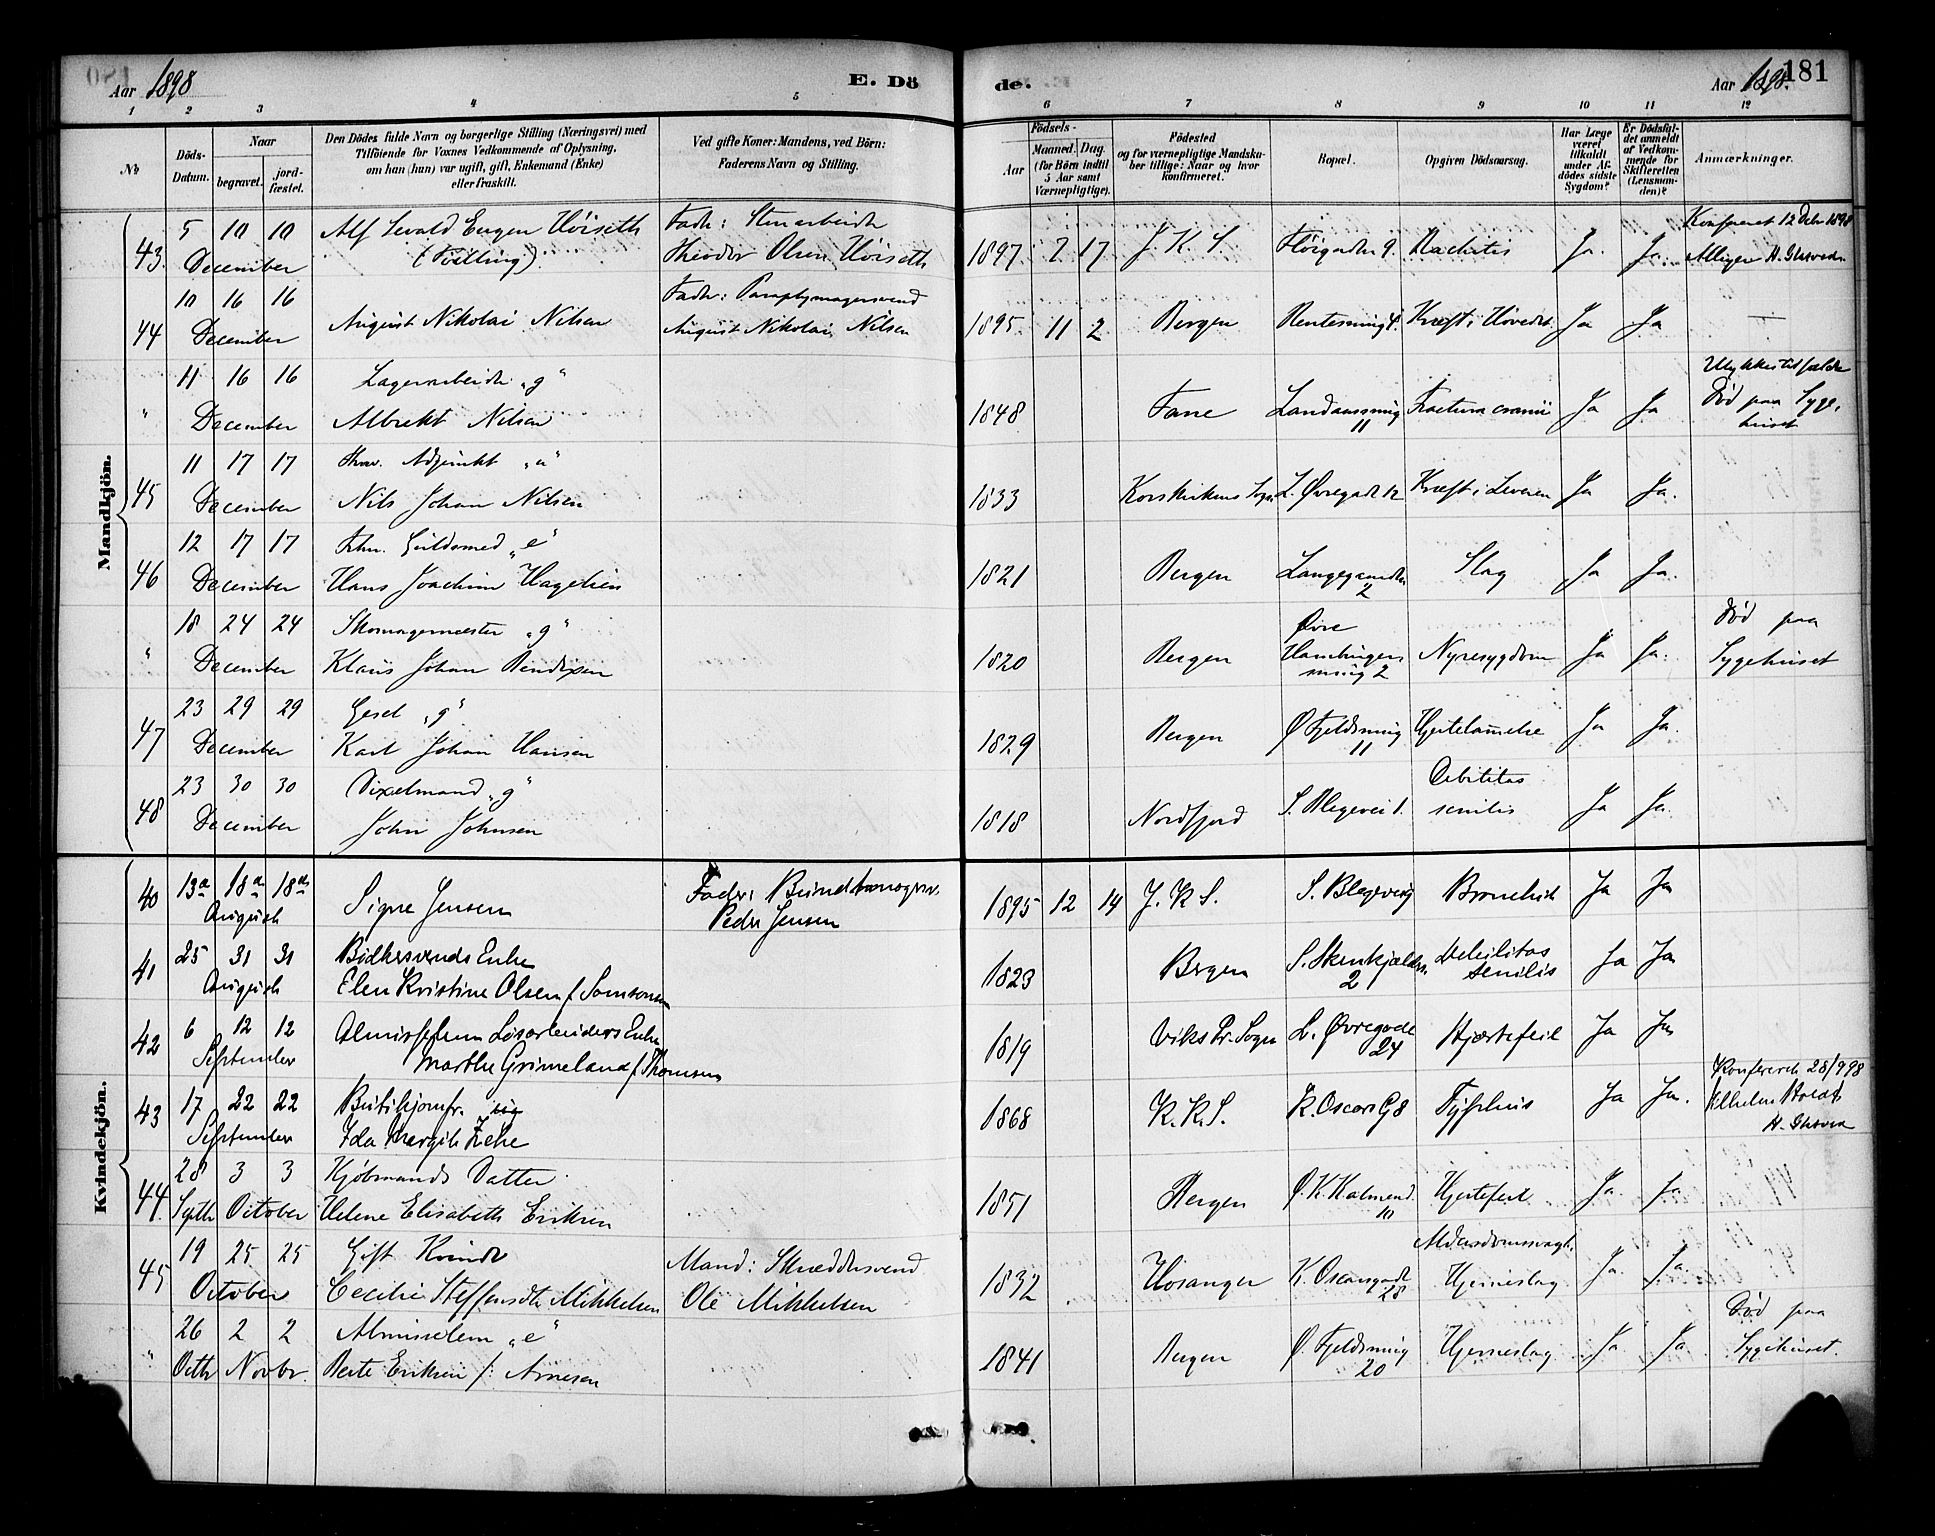 Aar 1898
E. Dö
de.
Aar 1898.
181
1 2 3 4 5 6 7 8 9 10 11 12
No
Döds-Datum.
Naar
begravet.
jord-fæstet.
Den Dödes fulde Navn og borgerlige Stilling (Næringsvei) med
Tilföiende for Voxnes Vedkommende af Oplysning,
om han (hun) var ugift, gift, Enkemand (Enke)
eller fraskilt.
Ved gifte Koner: Mandens, ved Börn:
Faderens Navn og Stilling.
Födsels-
Aar
Maaned.
Dag.
(for Börn indtil
5 Aar samt
Værnepligtige).
Födested
og for værnepligtige Mandska-
ber tillige: Naar og hvor
konfirmeret.
Bopæl.
Opgiven Dödsaarsag.
Har Læge
været
tilkaldt
under Af-
dödes sidste
Sygdom?
Er Dödsfal-
det anmeldt
af Vedkom-
mende for
Skifteretten
(Lensman-
den)?
Anmærkninger.
Mandkjön.
43 5 10 10 December
Alf Sevald Eugen Höiseth
Fader: Stenarbeider
Theodor Olsen Höiseth
1897 7 17 J. K. S. 9. Rachitis Ja. Ja.
Konfereret 12 Debr 1898
44 10 16 16 December
August Nikolai Nilsen
Fader: Paraplymagersvend
August Nikolai Nilsen
1895 11 2 Bergen Kræft i Hovedet Ja Ja —
" 11 16 16 December
Lagerarbeider "g"
Albrekt Nilsen
1848 Fane Landaassmug 11 Fractura cranii Ja Ja
Ulykkestilfælde
Död paa Syge-
huset
45 11 17 17 December
Adjunkt "u"
Nils Johan Nilsen
1833 Korskirkens Sogn L. Øvregade 12 Kræft i Leveren Ja Ja.
46 12 17 17 December
Fhv. Guldsmed "e"
Hans Joachim Hagelien
1821 Bergen 2 Slag Ja Ja.
" 18 24 24 December
Skomagermester "g"
Klaus Johan Bendixen
1820 Bergen Øvre
Hamburger
smug 2
Nyresygdom Ja Ja.
Död paa
Sygehuset
47 23 29 29 December
"g"
Karl Johan Hansen
1829 Bergen Ø Fjeldsmug 11 Hjertelammelse Ja Ja.
48 23 30 30 December
Vixelmand "g"
John Johnsen
1818 Nordfjord S. Blegevei 1. Debilitas
senilis Ja Ja.
Kvindekjön.
40 13de 18de 18de August
Signe Jensen
Fader: Bundtmagersv.
Peder Jensen
1895 12 14 J. K S. S. Blegevei Bronchit Ja Ja
41 25 31 31 August
Bödkersvends Enke
Elen Kristine Olsen f. Samsonsen
1823 Bergen 2 Debilitas
senilis Ja Ja
42 6 12 12 September
Almisselem Lösarbeiders Enke
Marthe Grimeland f. Thomsen
1819 Viks Pr. Sogn L. Øvregade 24 Hjærtefeil Ja Ja
43 17 22 22 September
Butikjomfr. ug
Ida Margit
1868 K. K. S. K. Oscars G 8 Tyfus Ja Ja.
Konfereret 28/9 98
44. 28 Septbr 3 3 October
Kjöbmands Datter
Helene Elisabeth Eriksen
1851 Bergen Ø. K. Kalmend. 10 Hjertefeil Ja. Ja.
45 19 25 25 October
Gift Kvinde
Cecilie Steffensdtr Mikkelsen
Mand: Skræddersvend
Ole Mikkelsen
1832 Hosanger K. Oscarsgade 28
Alderdomssvagh.
Hjerneslag Ja. Ja.
" 26 Octbr 2 2 Novbr.
Almisselem "e"
Berte Eriksen f: Arnesen
1841 Bergen Ø. Fjeldsmug 20 Hjerneslag Ja. Ja
Död paa
Sygehuset.